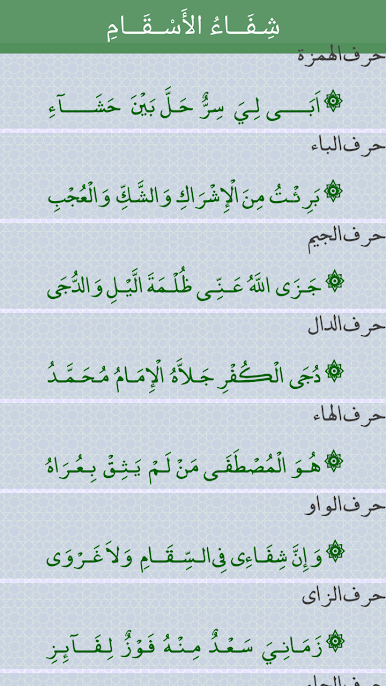 شِفَــاءُ الأَسْـقَــامِ
حرف الهمزة
اَبَــى لِيَ سِرٌّ حَـلَّ بَيْنَ حَشَــآءِ
حرف الباء
بَرِئْـتُ مِنَ الْإِشْرَاكِ وَالشَّكِّ وَالْعُجْبِ
حرف الجيم
جَـزَى اللَّهُ عَـنِّـى ظُلْـمَةَ الَّيْـلِ وَالدُّجَى
حرف الدال
دُجَى الْكُفْرِ جَـلاَّهُ الْإِمَـامُ مُـحَـمَّـدُ
حرف الهاء
هُـوَ الْمُصْطَفَـى مَنْ لَـمْ يَـثِـقْ بِـعُـرَاهُ
حرف الواو
وَإِنَّ شِفَـاءِى فِى السِّـقَــامِ وَلاَ غَـرْوَى
حرف الزاى
زَمَـانِـيَ سَـعْـدٌ مِـنْـهُ فَـوْزٌ لِـفَــآئِـزِ